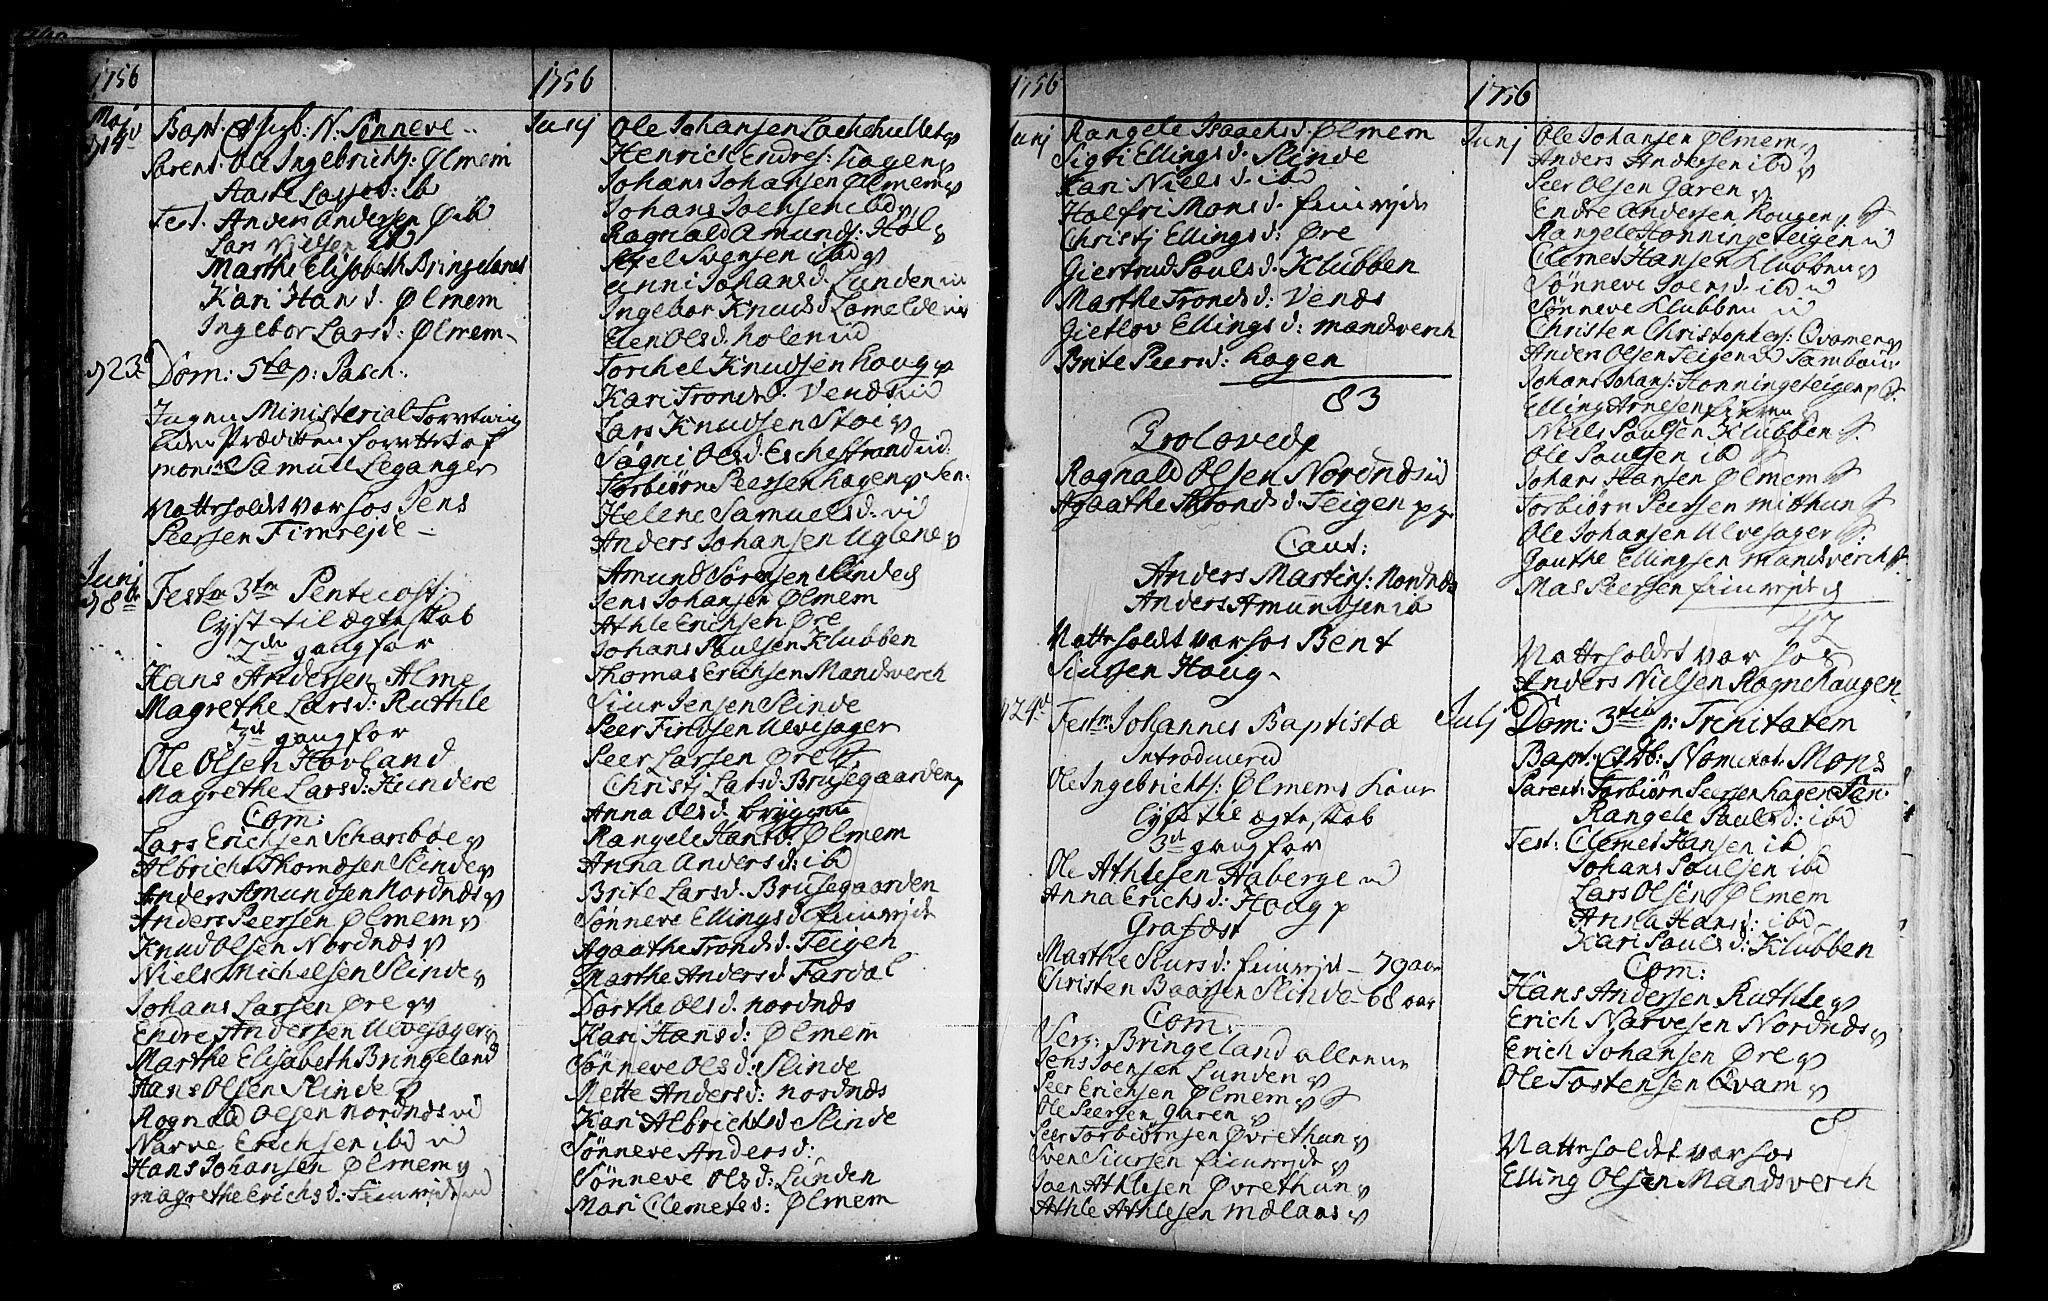 1756
Maj
Bapt: N. Sønneve
Parent: Ole Ingebrichtsj: Ølmem
Larsd: ib
Test. Anders Andersen ib
Lars Nielsen ib
Marthe Elisabeth Bringeland
Kari Hansd. Ølmem
Ingebor Larsd: Ølmem
d 23 Dom: 5ta p: Pasch:
Ingen Ministerial Forretning
uden Præditten forrettet af
mons: Samuel Leganger
Natteholdt var hos Jens
Peersen Fimrejde
Junj
d 8de Festm 3tm Pentecost:
Lyst til ægteskab
2den gang for
Hans Andersen Alme
Magrethe Larsd: Ruthle
3d gang for
Ole Olsen Hovland
Magrethe Larsd: Hundere
Com:
Lars Erichsen Scharsbøe
Albricht Thomæsen Slinde
Anders Amundsen Nordnæs
Anders Peersen Ølmem
Knud Olsen Nordnæs
Niels Michelsen Slinde
Johans Larsen Øre
Endre Andersen Ulvesager
Marthe Elisabeth Bringeland
Hans Olsen Slinde
Rognald Olsen Nordnæs
Narve Erichsen ibd
Hans Johansen Ølmem
Magrethe Erichsd: Fimrejde
1756
Junj
Ole Johansen
Henrich Endres: Hagen
Johans Johansen Ølmem
Johans Joensen ibd
Ragnald Amunds: Høl
Axel Svensen ibd
Anni Johansd: Lunden
Ingebor Knudsd Lomelde
Elen Olsd. holen
Torchel Knudsen houg
Kari Tronsd. Vendæ
Lars Knudsen Stoi
Søgni Olsd: Eschestrand
Torbiørn Peersen hagen Sen.
Helene Samuelsd:
Anders Johansen Uglene
Amund Sørensen Slinde
Jens Johansen Ølmem
Athle Erichsen Øre
Johans Paulsen Klubben
Thomas Erichsen Mandsverch
Siur Jensen Slinde
Peer Findsen Ulvesager
Peer Larsen Øre
Christj Larsd: Brusegaarden
Anna Olsd: bryggen
Rangele Hansd: Ølmem
Anna Andersd: ibd
Brite Larsd. Brusegaarden
Sønneve Ellingsd. fimrejde
Agaathe Tronsd. Teigen
Marthe Andersd Fardal
Dorthe Olsd. Nordnæs
Kari Hansd: Ølmem
Sønneve Olsd: Slinde
Mette Andersd: Nordnæs
Kari Albrichtsd Slinde
Sønneve Andersd:
Sønneve Olsd: Lunden
Mari Clemetsd: Ølmem
1756
Junj
Rangele Isaachsd: Ølmem
Sigri Ellingsd: Slinde
Kari Nielsd. ibd
Halfri Monsd. fimrejde
Christj Ellingsd: Øre
Giertrud Paulsd: Klubben
Marthe Tronsd: Vendæ
Gietlov Ellingsd: Mandsverch
Brite Peersd: hagen
83
Trolovede
Ragnald Olsen Nordnæs
Agaathe Tronsd. Teigen
Caut:
Anders Martins: Nordnæs
Anders Amundsen ib
Natteholdt var hos Bent
Siursen Houg
d 24d Festm Johannes Baptistæ
Introducered
Ole Ingebrichtsj: Ølmems Kone
Lyst til ægteskab
3d gang for
Ole Athlesen Aaberge
Anna Erichsd: Houg
Grafæst
Marthe Siursd: fimrejde 79 aar
Christen Baarsen Slinde 68 aar
Com:
Verg: Bringeland allene
Jens Joensen Lunden
Peer Erichsen Ølmem
Ole Peersen garen
Peer Torbiørnsen Øvrethun
Sven Siursen fimrejde
Joen Athlesen Øvrethun
Athle Athlesen Mælaas
1756
Junj
Ole Johansen Ølmem
Anders Andersen ibd
Peer Olsen Garen
Endre Andersen Kougen
Rangele Honningeteigen
Clemet Hansen Klubben
Sønneve Joensd. ibd
Sønneve Klubben
Christen Christophers: Qvamen
Anders Olsen Teigen Tambour
Johans Johans: Honningeteigen
Elling Arnesen
Niels Paulsen Klubben
Ole Paulsen ibd
Johans Hansen Ølmem
Torbiørn Peersen Mithun
Ole Johansen Ulvesager
Gouthe Ellingsen Mandsverch
Mas Peersen fimrejde
42
Natteholdet var hos
Anders Nielsen Rognehaugen
Julj Dom: 3tia p: Trinitatem
Bapt: Nominat: Mons
Parent: Torbiørn Peersen hagen Sen:
Rangele Paulsd: ibd
Test: Clemet Hansen ib
Johans Paulsen ibd
Lars Olsen Ølmem
Anna Hansd: ibd
Kari Paulsd: Klubben
Com:
Hans Andersen Ruthle
Erich Narvesen Nordnæs
Erich Johansen Øre
Ole Tostensen Qvam
8
Natteholdet var hos
Elling Olsen Mandsverch